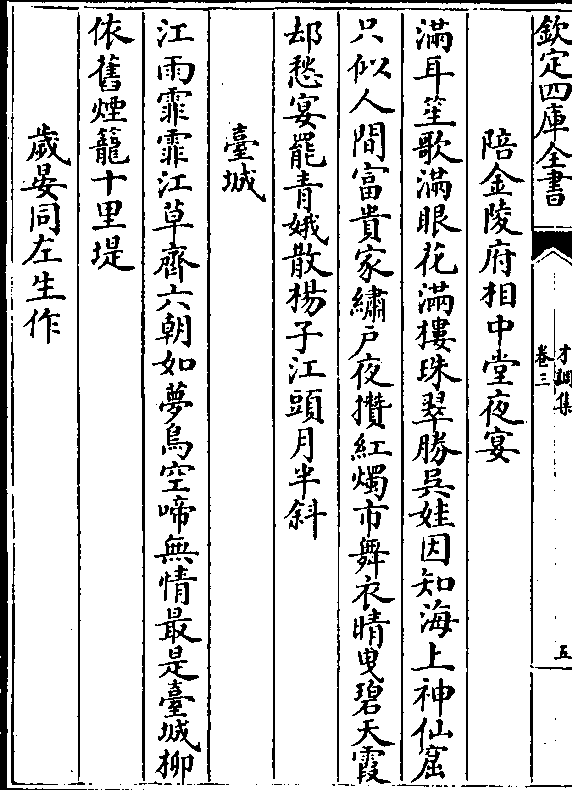 欽定四庫全書
才調集
卷三
五
陪金陵府相中堂夜宴
滿耳笙歌滿眼花滿樓珠翠勝吳娃因知海上神仙窟
只似人間富貴家繡戶夜攢紅燭市舞衣晴曳碧天霞
却愁宴罷青娥散揚子江頭月半斜
臺城
江雨霏霏江草齊六朝如夢鳥空啼無情最是臺城柳
依舊煙籠十里堤
歲晏同左生作